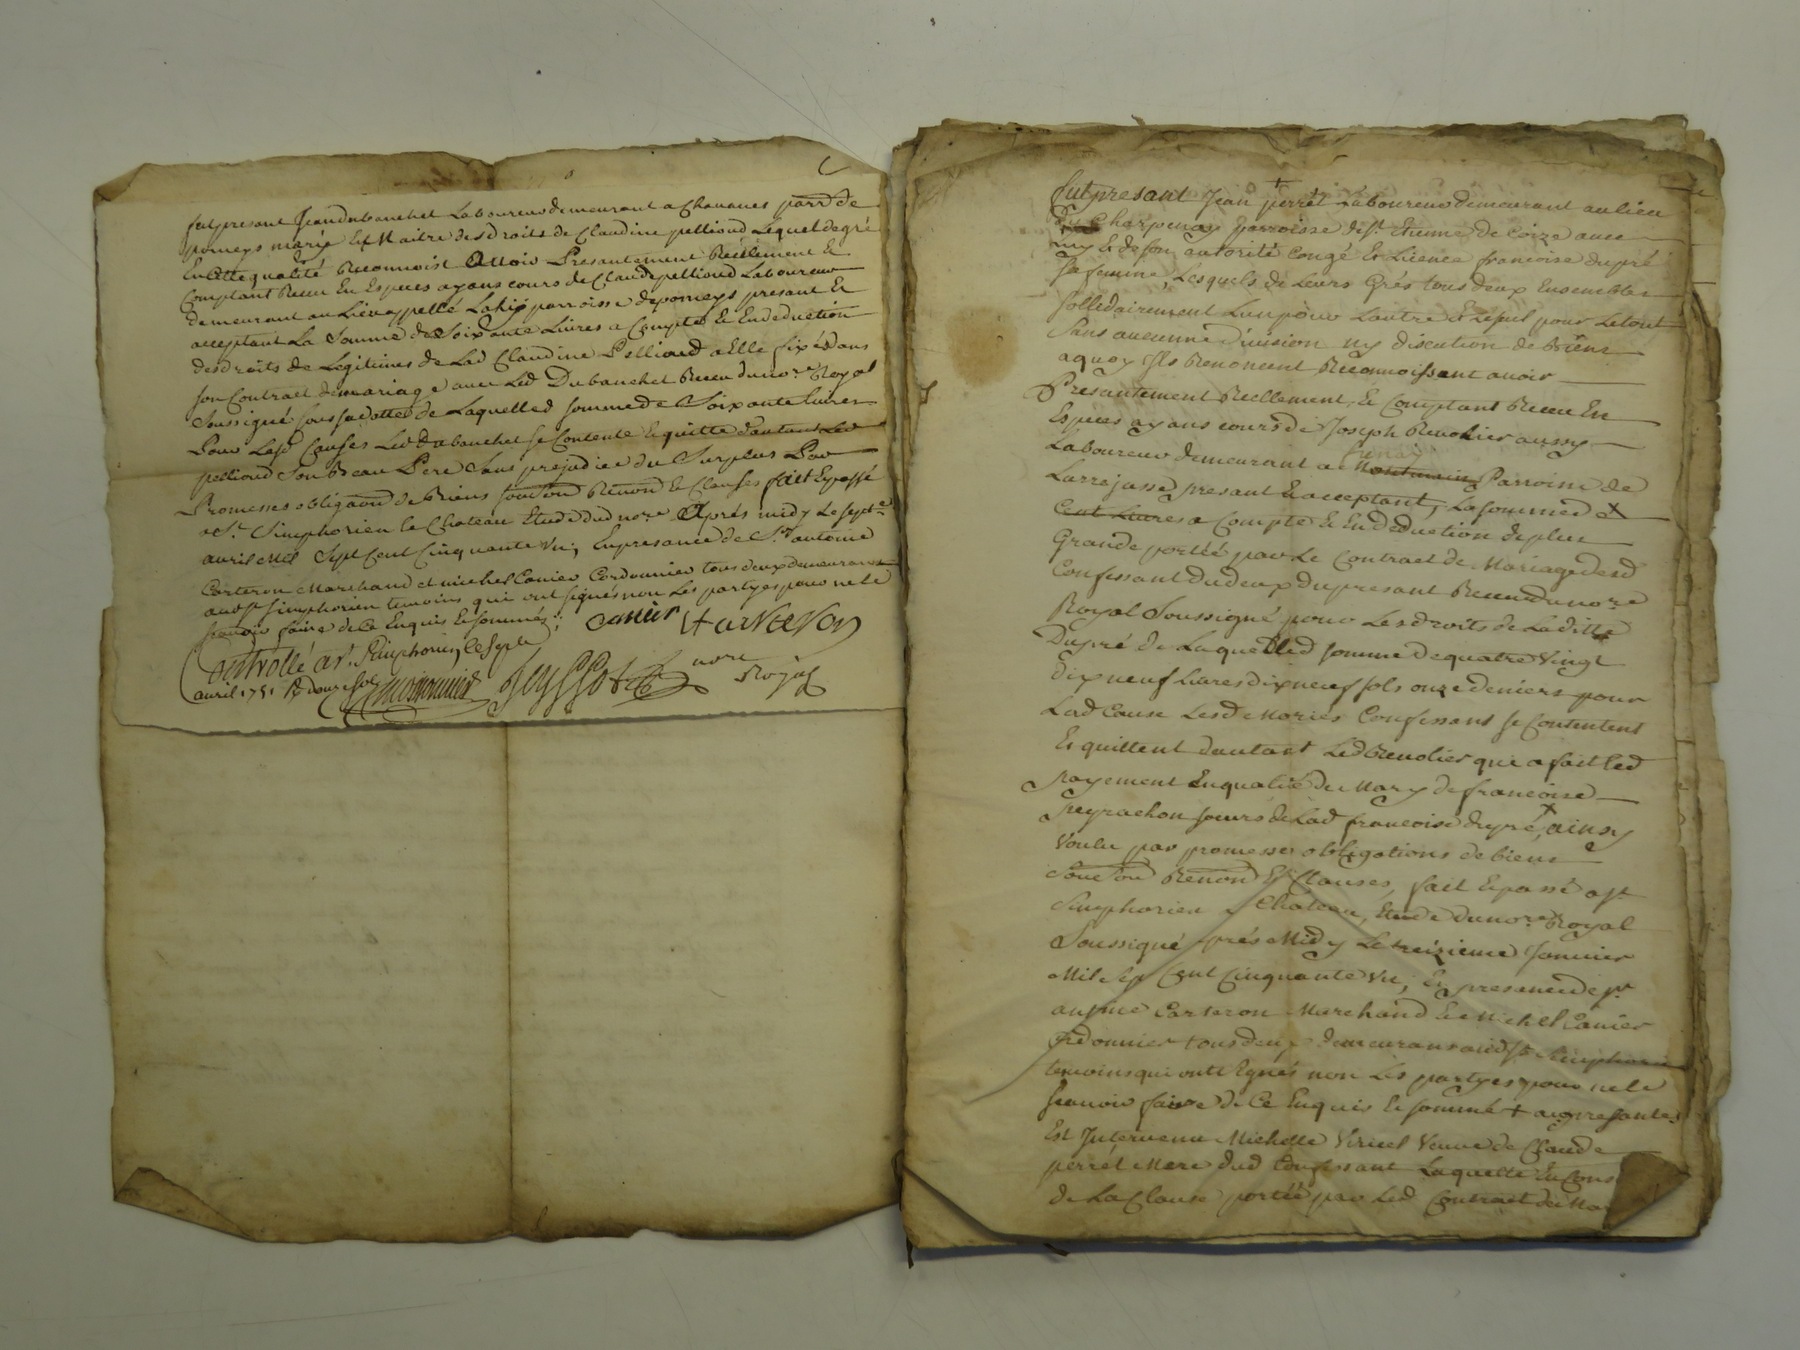 fut presant Jean dubanchet Laboureur demeurant a Chavanes parr^e de
pomeys mary Et Maitre des droits de Claudine pelliond Lequel de gré
En Cette qualité Reconnoist Avoir Presantement Reéllement Et
Comptant Receu En Especes ayans cours de Claude pelliond Laboureur
demeurant au Lieu appellé parroisse de pomeys presant Et
acceptant La Somme de Soixante Livres a Compte Et En deduction
des droits de Legitimes de Lad Claudine Pelliond a Elle fixés dans
son Contract de mariage avec Led Dubanchet Receu du no^re Royal
Soussigné sous sa datte de Laquelled somme de Soixante Livres
Pour Lesd Causes Led dubanchet se Contente Et quitte dautant Led
pelliond Son Beau Pere Sans prejudice du Surplus Par
Promesses obligaon de Biens Renon Et Clauses fait Et passé
a S^t Simphorien le Chateau Etude dud no^re Après midy Le sept^e
avril Mil Sept Cent Cinquante Un, En presance de S^r antoine
Carteron Marchand et michel Canier Cordonnier tous deux demeurans
aud S^t Simphorien temoins qui ont signé non Les partyes pour ne le
scavoir faire de Ce Enquis Et sommés; Canier Carteron
Controllé a S^t Simphorien le sept^e
avril 1751 R douze sols no^re Royal
fut presant Jean perrét Laboureur demeurant au lieu
du Charpenay parroisse de S^t Etienne de Coize avec
luy Et de son autorité congé Et Licence francoise dupré
sa femme, Lesquels de Leurs Grés tous deux Ensembles
sollidairement Lun pour Lautre Et le seul pour Le tout
Sans aucunne division ny discution de Biens
a quoy Ils Renoncent Reconnoissent avoir
Presantement Reéllement, Et Comptant Receu En
Especes ayans cours de Joseph aussy
Laboureur demeurant a Parroisse de
Larrajasse presant Et acceptant, La somme de +
Cent Livres a Compte Et En deduction de plus
Grande portée par Le Contract de Mariage desd
Confessant dud dupré presant Receu du no^re
Royal Soussigné pour Les droits de Laditte
Dupré de Laquelled somme de quatre Vingt
dix neuf Livres dix neuf sols onze deniers pour
Lad Cause Lesd Mariés Confessant se Contentent
Et quittent dautant Led qui a fait Led
payement En qualité de Mary de francoise
peyrachon soeurs de Lad francoise dupré, + ainsy
Voulu par promesses obligations de biens
Renon Et Clauses, fait Et passé a S^t
Simphorien Le Chateau, Etude du no^re Royal
Soussigné après Midy Le treizieme Janvier
Mil Sept Cent Cinquante Un, En presance de S^r
antoine Carteron Marchand Et Michel Canier
Cordonnier tous deux demeurans aud S^t Simphorien
temoins qui ont signés non Les partyes pour ne le
scavoir faire de Ce Enquis Et sommé + aux presantes
Est Intervenue Michelle Veuve de Claude
perrét Mere dud Confessant Laquelle En Cons
de La Clause portée par Led Contract de Ma